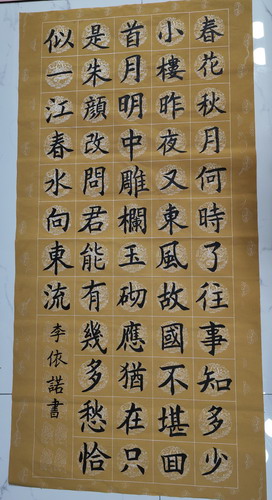 春花秋月何時了往事知多少
小樓昨夜又東風故國不堪回
首月明中雕欄玉砌應猶在只
是朱顔改問君能有幾多愁恰
似一江春水向東流
李依諾書